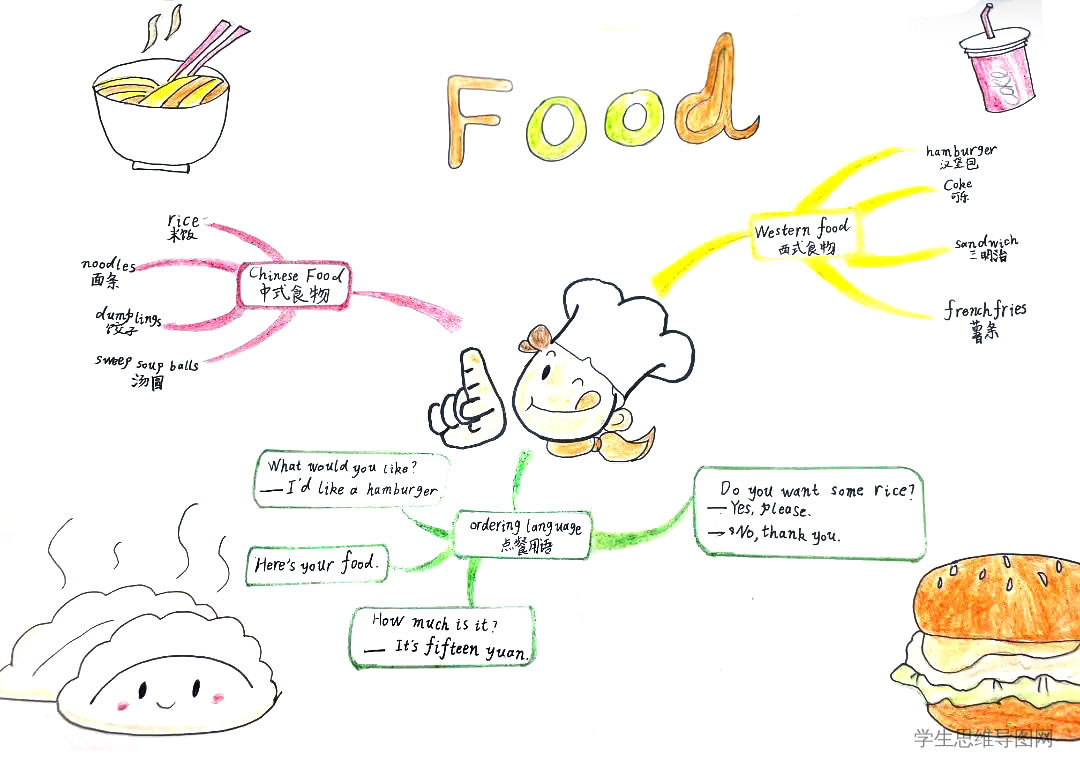 Food
Coke
Chinese Food
中式食物
rice
米饭
noodles
面条
dumplings
饺子
sweep soup balls
汤圆
Western food
西式食物
hamburger
汉堡包
Coke
可乐
sandwich
三明治
french fries
薯条
ordering language
点餐用语
What would you like?
— I'd like a hamburger.
Here's your food.
How much is it?
— It's fifteen yuan.
Do you want some rice?
— Yes, please.
— No, thank you.
学生思维导图网